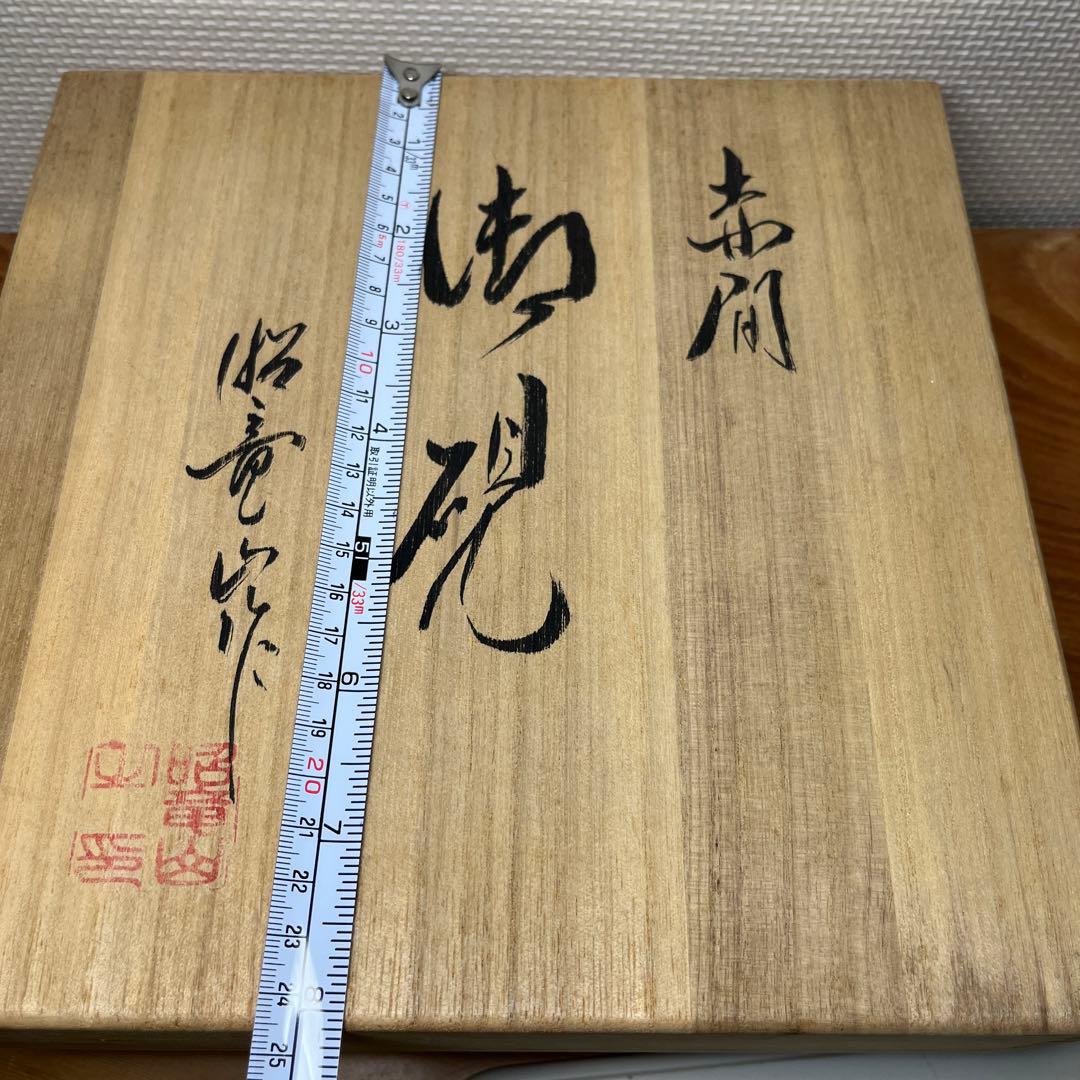 赤間
御硯
昭竜山作
1 2 3 4 5 6 7 8
180/33m
取引証明以外用
/33m
2 3 4 5 6 7 8 9 10 11 12 13 14 15 16 17 18 19 20 21 22 23 24 25